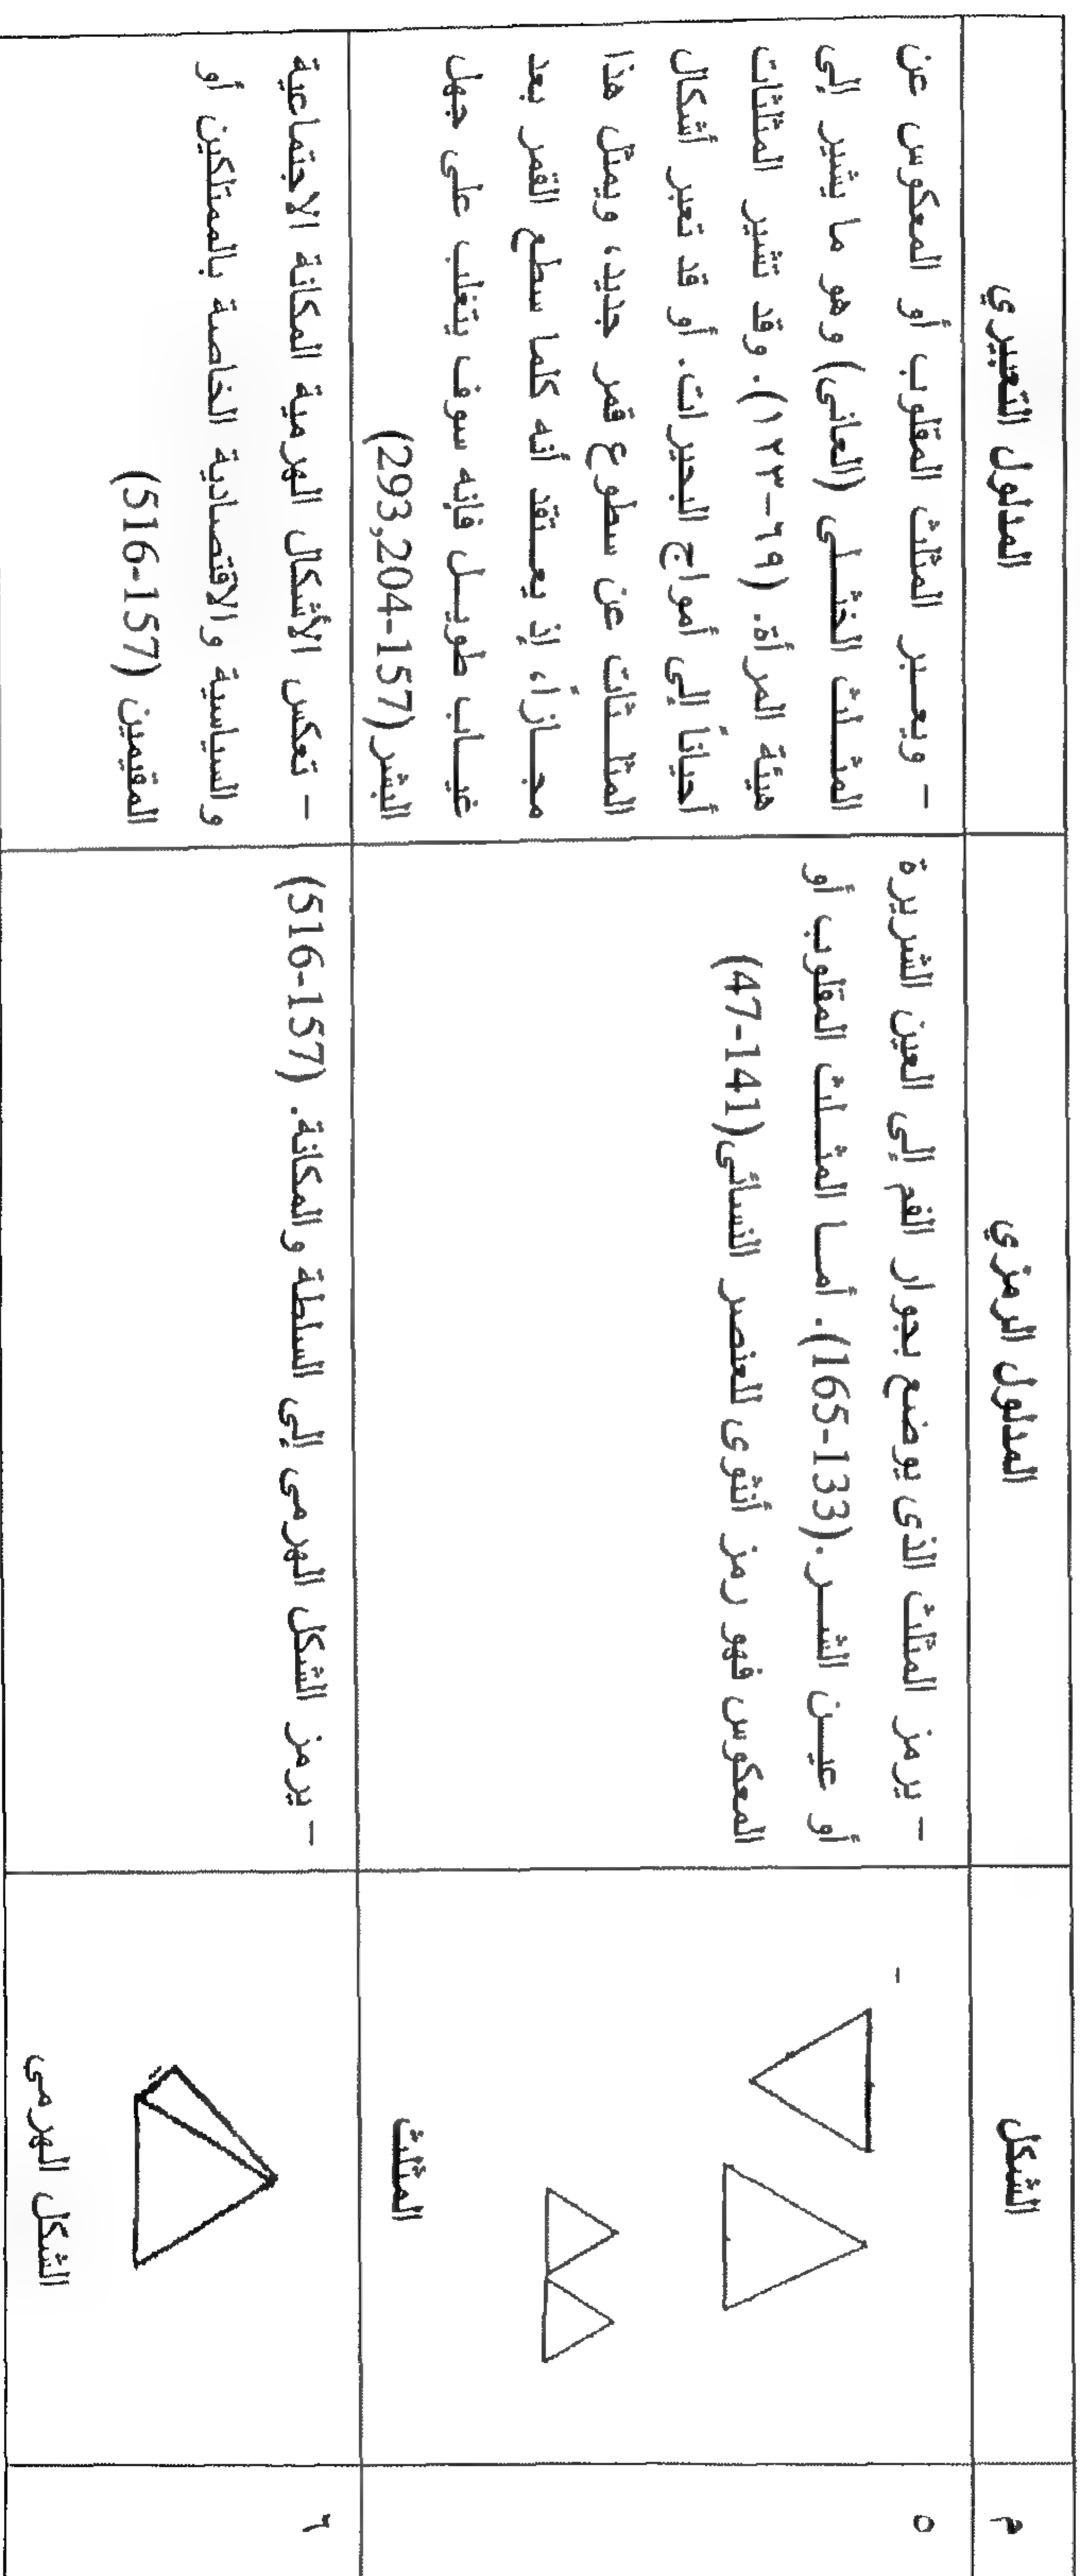 م
الشكل
المدلول الرمزي
المدلول التعبيري
٥
-
المثلث
- يرمز المثلث الذى يوضع بجوار الفم إلى العين الشريرة
أو عيـــن الشـــر.(165-133). أمـــا المثـــلث المقلوب أو
المعكوس فهو رمز أنثوى للعنصر النسائى(47-141)
- ويعـــبر المثلث المقلوب أو المعكوس عن
المثـــلث الخنثـــى (العانى) وهو ما يشير إلى
هيئة المرأة. (٦٩-١٢٣). وقد تشير المثلثات
أحياناً إلى أمواج البحيرات. أو قد تعبر أشكال
المثلـــثات عن سطوع قمر جديد، ويمثل هذا
مجـــازاً، إذ يعـــتقد أنه كلما سطع القمر بعد
غيـــاب طويـــل فإنه سوف يتغلب على جهل
البشر(293,204-157)
٦
الشكل الهرمى
- يرمز الشكل الهرمى إلى السلطة والمكانة. (516-157)
- تعكس الأشكال الهرمية المكانة الاجتماعية
والسياسية والاقتصادية الخاصة بالممتلكين أو
المقيمين (516-157)